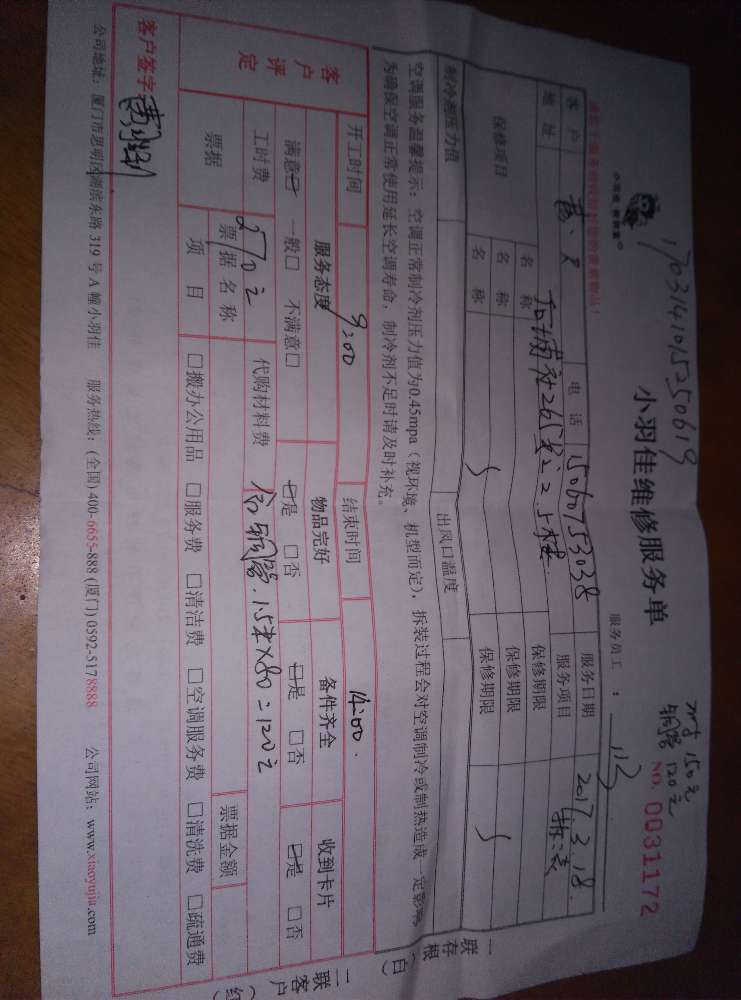 1703141015250619
小羽佳维修服务单
150元
铜管 120元
NO. 0031172
服务员工：
客户 电话 15060753038 服务日期 2017.3.18.
地址 服务项目 拆装
保修项目 名称 保修期限
名称 保修期限
名称 保修期限
制冷剂压力值 出风口温度
空调服务温馨提示：空调正常制冷剂压力值为0.45mpa（视环境、机型而定），拆装过程会对空调制冷或制热造成一定影响，
为确保空调正常使用延长空调寿命，制冷剂不足时请及时补充。
开工时间 9:00 结束时间 14:00.
客户评定 服务态度 物品完好 备件齐全 收到卡片
满意☑ 一般□ 不满意□ ☑是 □否 ☑是 □否 ☑是 □否
工时费 270元 代购材料费 含铜管.1.5米×80=120元
票据 票据名称 票据金额
项目 □搬办公用品 □服务费 □清洁费 □空调服务费 □清洗费 □疏通费
客户签字：
公司地址：厦门市思明区湖滨东路 319 号 A 幢小羽佳 服务热线：(全国) 400-6655-888 (厦门) 0592-5178888 公司网站：www.xiaoyujia.com
一联存根（白）
二联客户（红